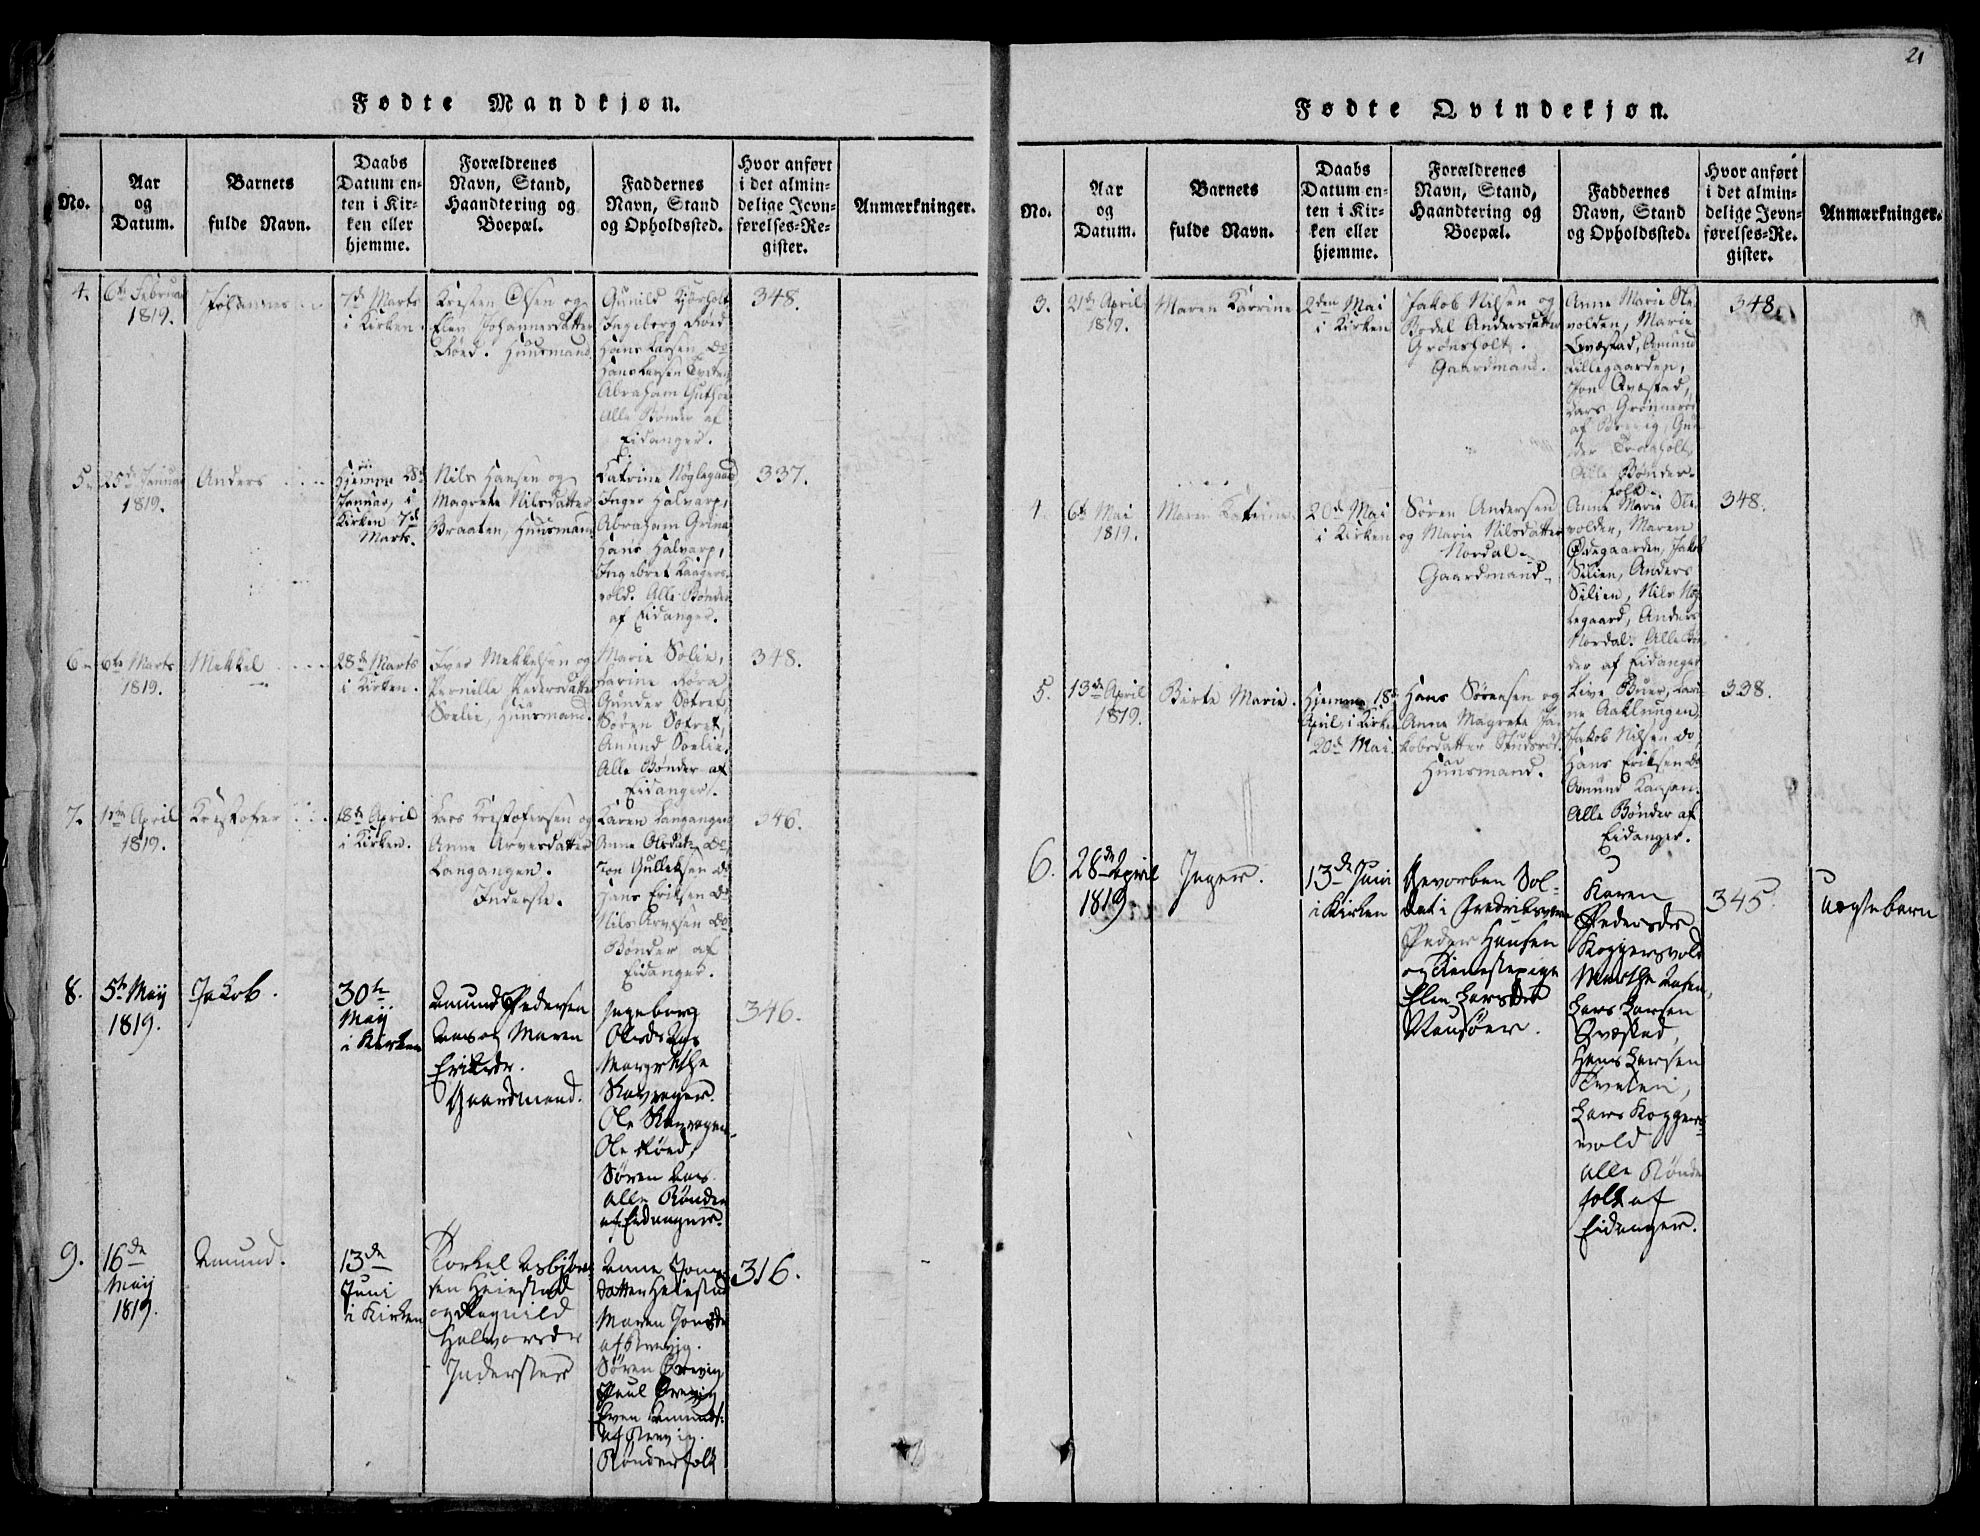 Fødte Mandkjøn.
No.
Aar
og
Datum.
Barnets
fulde Navn.
Daabs
Datum en-
ten i Kir-
ken eller
hjemme.
Forældrenes
Navn, Stand,
Haandtering og
Boepæl.
Faddernes
Navn, Stand
og Opholdssted.
Hvor anført
i det almin-
delige Jevn-
førelses-Re-
gister.
Anmærkninger.
4.
6te Februar
1819.
Johannes
7de Marts
i Kirken.
Kresten Olsen og
Elen Johannesdatter
Røed. Huusmand
Gunild Kjørholt
Ingeborg Røed
Hans Larsen do
Hans Larsen Tveten
Abraham
Alle Bønder af
Eidanger.
348.
5.
25de Januar
1819.
Anders
Hjemme 28de
Januar, i
Kirken 7de
Marts.
Nils Hansen og
Magrete Nilsdatter
Braaten, Huusmand
Catrine Nøglegaard
Inger Halvarp,
Abraham Grina
Hans Halvarp,
Ingebret Kaagers-
vold. Alle Bønder
af Eidanger.
337.
6.
6te Marts
1819.
Mekkel
28de Marts
i Kirken.
Iver Mekkelsen og
Pernille Pedersdatter
Solie, Huusmand.
Marie Solie,
Karine Røra
Gunder Sætret,
Søren Sætret,
Amund Solie.
Alle Bønder af
Eidanger.
348.
7.
April
1819.
Kristofer
18de April
i Kirken.
Lars Kristofersen og
Anne Arvesdatter
Langangen.
Inderste.
Karen Langangen
Anne Olsdatr. do
Jon Gulleksen do
Hans Eriksen do
Nils Arvesen do
Bønder af
Eidanger.
346.
8.
5te Maij
1819.
Jakob.
30te
Maij
i Kirken
Amund Pedersen
Aas og Maren
Eriksdr.
Gaardmand.
Ingeborg
Olesdr Aas
Margrethe
Skavrager.
Ole Skavragen
Ole Røed,
Søren Aas.
Alle Bønder
af Eidanger.
346.
9.
16de
Maij
1819.
Amund.
13de
Juni
i Kirken
Torkel Asbjørn-
sen Heiestad
og Ragnild
Halvorsdr
Inderster
Anne Jons-
datter Heiestad
Maren Jonsdr
af Brevig.
Søren Brevig
Poul Brevig
Even Amunds.
af Brevig.
Bønderfolk
316.
21
Fødte Qvindekjøn.
No.
Aar
og
Datum.
Barnets
fulde Navn.
Daabs
Datum en-
ten i Kir-
ken eller
hjemme.
Forældrenes
Navn, Stand,
Haandtering og
Boepæl.
Faddernes
Navn, Stand
og Opholdssted.
Hvor anført
i det almin-
delige Jevn-
førelses-Re-
gister.
Anmærkninger.
3.
21de April
1819.
Maren Karrine
2den Mai
i Kirken
Jakob Nilsen og
Bodel Andersdatter
Grønsholt.
Gaardmand.
Anne Marie Ne-
volden, Marie
Qvæstad, Amund
Lillegaarden,
Jon Qvæstad,
Lars
af Brevig, Gun-
der
Alle Bønder-
folk
348.
4.
6te Mai
1819.
Maren Katrine
20de Mai
i Kirken
Søren Andersen
og Marie Nilsdatter
Nordal.
Gaardmand.
Anne Marie Ne-
volden, Maren
Ødegaarden, Jakob
Silien, Anders
Silien, Nils Nøg-
legaard, Anders
Nordal. Alle Bøn-
der af Eidanger
348.
5.
13de April
1819.
Birte Marie.
Hjemme 18de
April, i Kirken
20de Mai
Hans Sørensen og
Anne Magrete Ja-
kobsdatter
Huusmand.
Live Buer, Kari-
ne Aaklungen,
Jakob Nilsen do,
Hans Eriksen do
Amund
Alle Bønder af
Eidanger.
338.
6.
28de April
1819
Inger.
13de Juni
i Kirken
Gevorben Sol-
dat i Fredriksværn
Peder Hansen
og Tienestepige
Elen Larsdtr
Karen
Pedersdr
Koggersvold
Marthe
Lars Larsen
Qvæstad,
Hans Larsen
Tveten,
Lars Koggers-
vold
Alle Bønder
folk af
Eidanger.
345.
uægtebarn